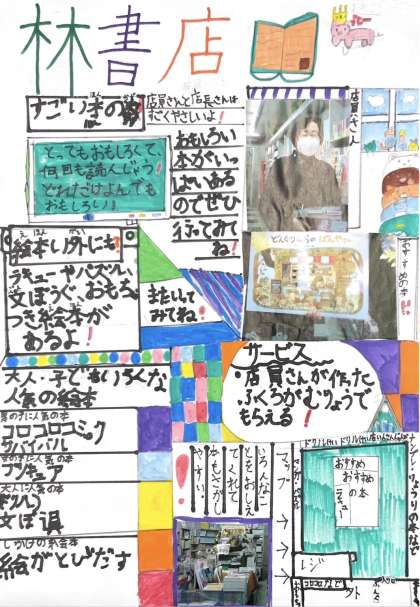 林書店
すごい本の数
店員さんと店長さんは
すごくやさしいよ!
おもしろい
本がいっ
ぱいある
のでぜひ
行ってみて
ね!
とってもおもしろくて、
何回も読んじゃう!
どれだけよんでも
おもしろい!
店員さん
おすすめの本
絵本い外にも
えほん
がい
文ぼうぐ、おもちゃ
つき絵本が
あるよ!
またいって
みてね!
サービス
店員さんが作った
ふくろがむりょうで
もらえる!
大人・子どもいろんな
人気の絵本
男の子に人気の本
コロコロコミック
サバイバル
女の子に人気の本
プリキュア
大人に人気の本
文ぼ具
しかけの絵本
絵がとびだす
いろんな
ことをおしえ
てくれて
やすい。
マップ
おすすめ
おすすめ
の本
レジ